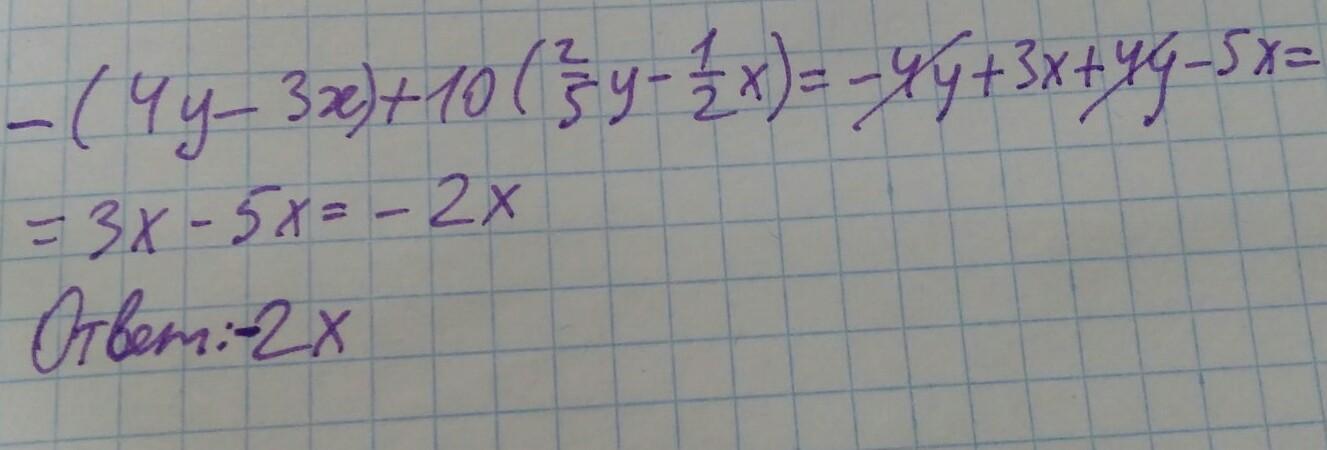 -(4y-3x)+10(2/5y-1/2x)=-4y+3x+4y-5x=
=3x-5x=-2x
Ответ:-2x